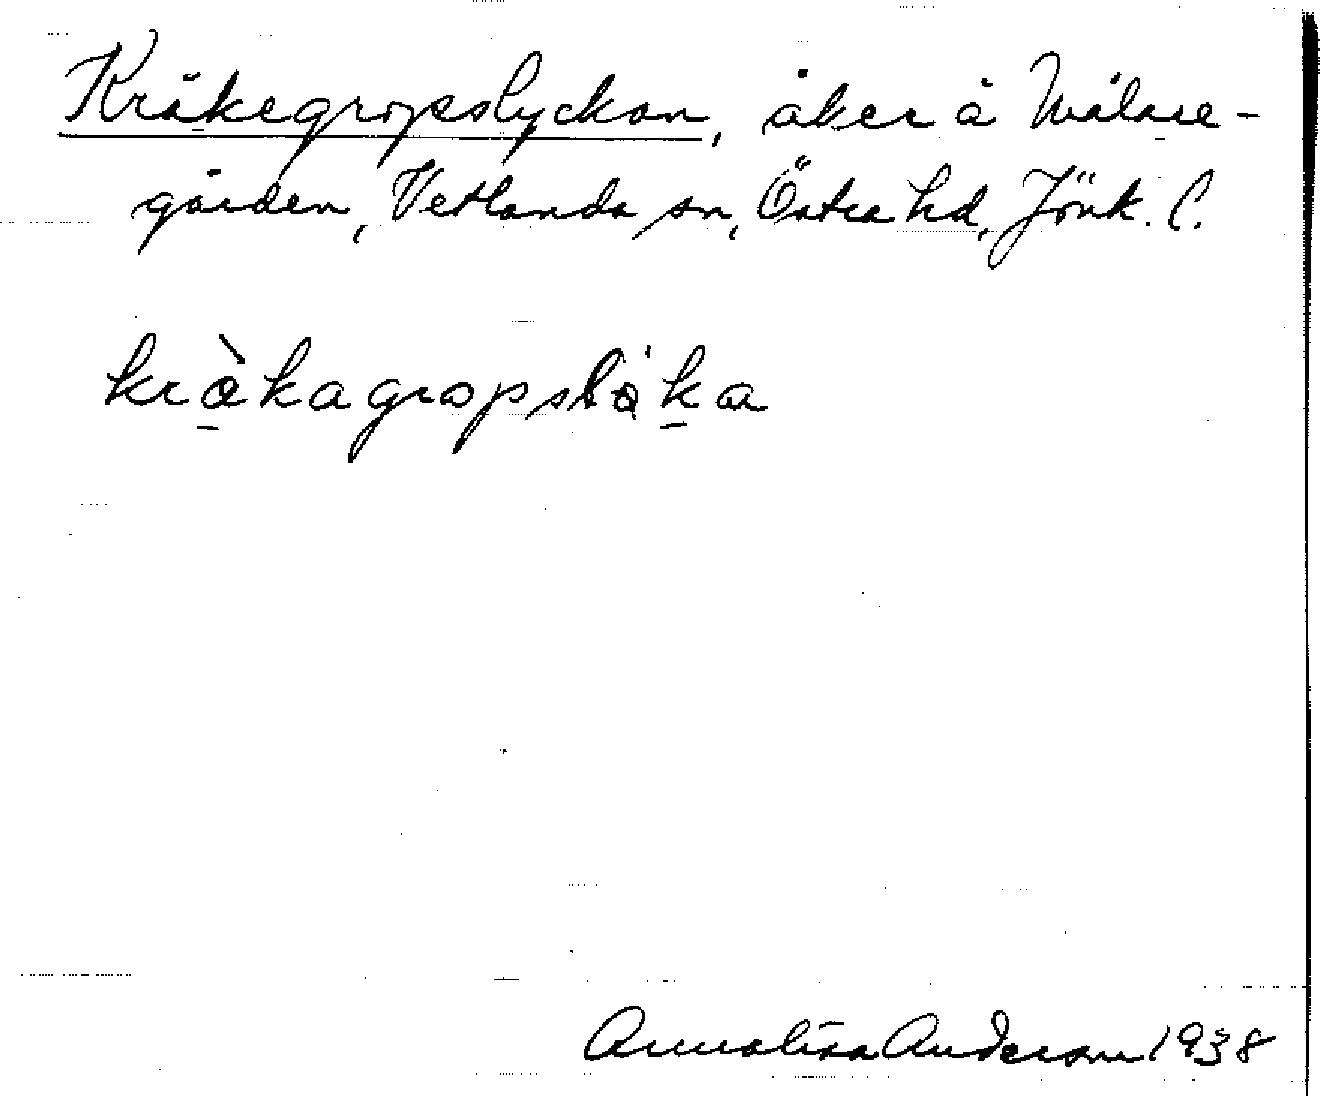 Kråkegropslyckan, åker å Målare-
gården, Vetlanda sn, Östra hd, Jönk. l.
kråkagropslöka
Annalisa Anderson 1938